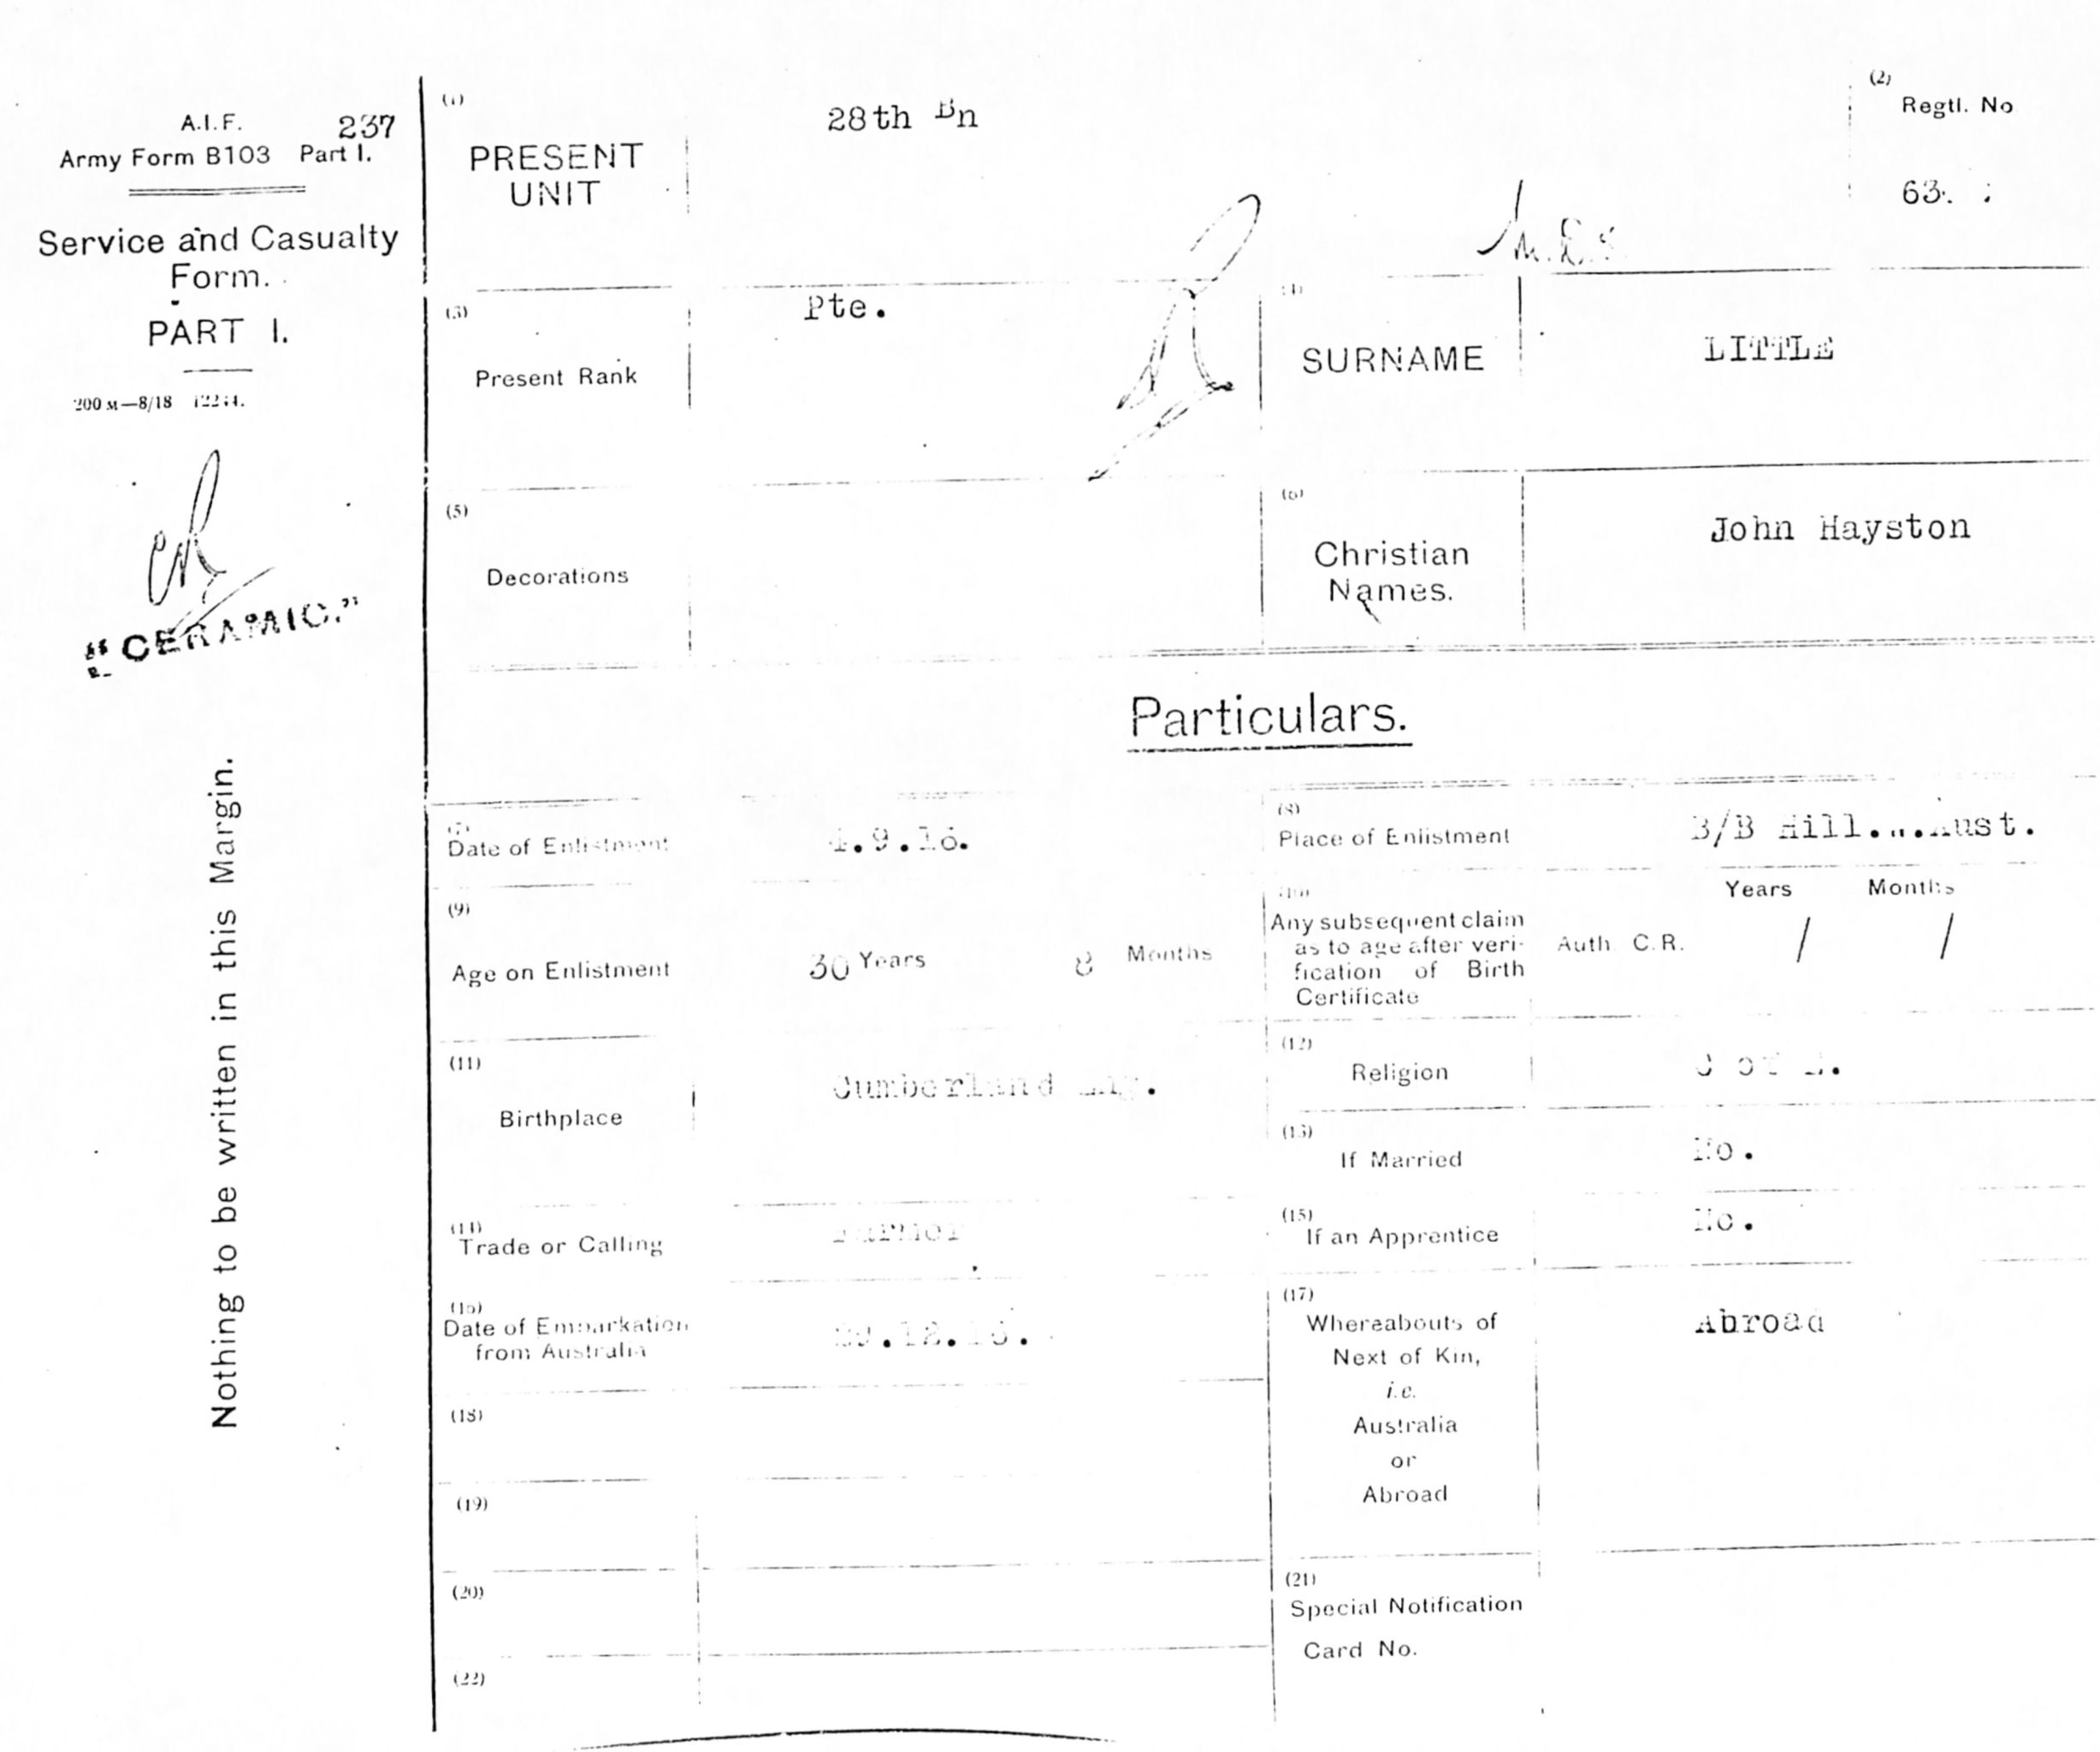 A.I.F. 237
Army Form B103 Part I.
Service and Casualty
Form.
PART I.
200 M—8/18
"CERAMIC."
Nothing to be written in this Margin.
(1)
PRESENT
UNIT
28th Bn
(2)
Regtl. No
(3)
Present Rank
Pte.
(4)
SURNAME
LITTLE
(5)
Decorations
(6)
Christian
Names.
John Hayston
Particulars.
(7)
Date of Enlistment
4.9.16.
(8)
Place of Enlistment
B/B Hill.W.Aust.
(9)
Age on Enlistment
30 Years 8 Months
(10)
Any subsequent claim
as to age after veri-
fication of Birth
Certificate
Auth C.R.
Years Months
/ /
(11)
Birthplace
Cumberland Eng.
(12)
Religion
C of E.
(13)
If Married
No.
(14)
Trade or Calling
Farmer
(15)
If an Apprentice
No.
(16)
Date of Embarkation
from Australia
(17)
Whereabouts of
Next of Kin,
i.e.
Australia
or
Abroad
Abroad
(18)
(19)
(20)
(21)
Special Notification
Card No.
(22)